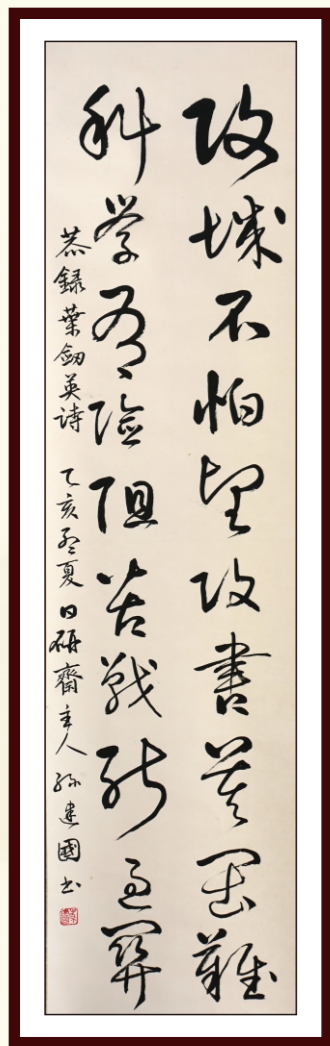 攻城不怕堅攻書莫畏難
科學有險阻苦戰能過關
恭録葉劍英詩 乙亥孟夏日研齋主人孫建國書